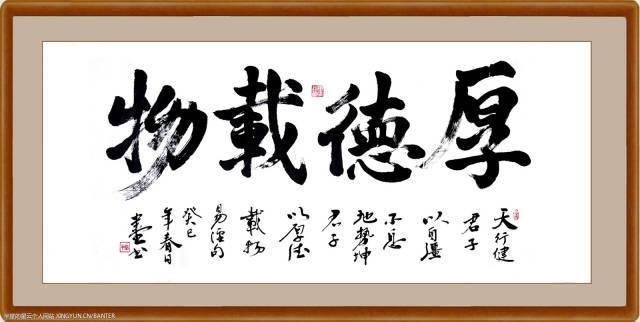 厚德載物
天行健
君子
以自彊
不息
地勢坤
君子
以厚德
載物
易經句
癸巳
年春日
書
XINGYUN.CN/BANTER